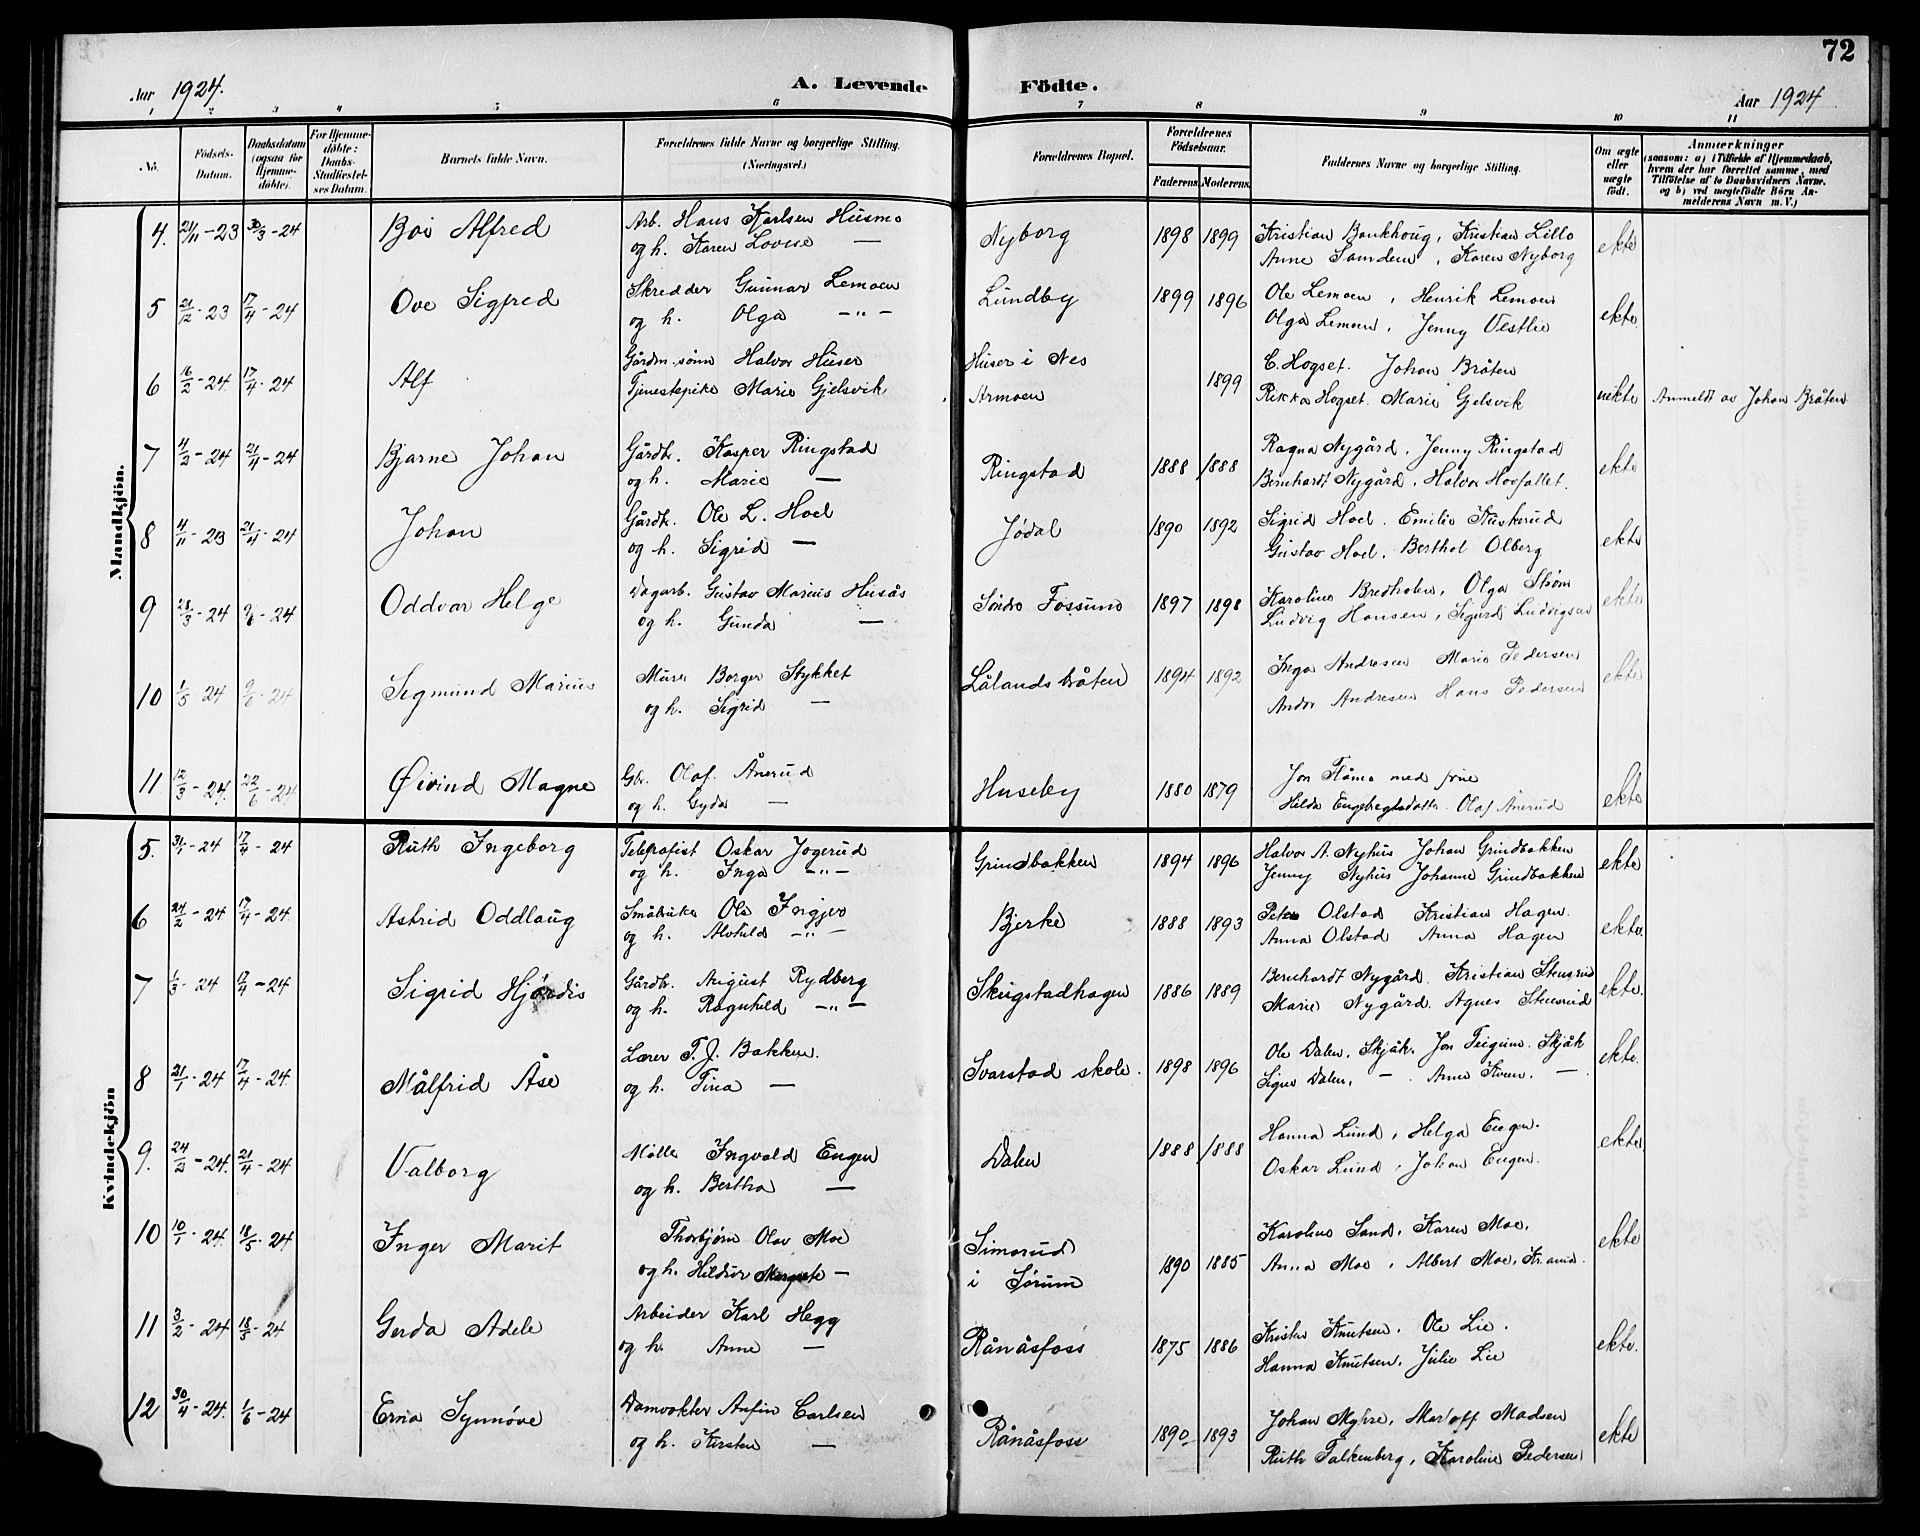 72
Aar 1924. A. Levende Födte. Aar 1924
1 2 3 4 5 6 7 8 9 10 11
No. Födsels-Datum. Daabsdatum (ogsaa for Hjemme-döbte). For Hjemme-döbte: Daabs-Stadfestel-ses Datum. Barnets fulde Navn. Forældrenes fulde Navne og borgerlige Stilling. (Næringsvei.) Forældrenes Bopæl. Forældrenes Födselsaar. Faderens. Moderens. Faddernes Navne og borgerlige Stilling. Om ægte eller uægte födt. Anmærkninger (saasom: a) i Tilfælde af Hjemmedaab, hvem der har forrettet samme, med Tilföielse af to Daabsvidners Navne, og b) ved uægtefödte Börn An-melderens Navn m. V.)
Mandkjön.
4. 21/11-23 30/3-24 Boi Alfred Arb. Hans Karlsen Husmo Nyborg 1898 1899 Kristian Bankhoug, Kristian Lillo ekte
og h. Karen Lovise — Anne Samdem, Karen Nyborg
5 21/12-23 17/4-24 Ove Sigfred Skredder Gunnar Lemoen Lundby 1899 1896 Ole Lemoen, Henrik Lemoen ekte
og h. Olga -"- Olga Lemoen, Jenny Vestlie
6 16/2-24 17/4-24 Alf Gårdm. sønn Halvor Huser Huser i Nes C. Hogset. Johan Bråten
Tjenestepike Marie Gjelsvik Armoen 1899 Rikka Hogset. Marie Gjelsvik uekte Anmeldt av Johan Bråten
7 4/2-24 21/4-24 Bjarne Johan Gårdbr. Kasper Ringstad Ringstad 1888 1888 Ragna Nygård, Jenny Ringstad ekte
og h. Marie — Bernhardt Nygård, Halvor Horfallet.
8 4/11-23 21/4-24 Johan Gårdbr. Ole L. Hoel Jødal 1890 1892 Sigrid Hoel. Emilie Kuskerud ekte
og h. Sigrid — Gustav Hoel. Berthol Olberg
9 28/3-24 9/6-24 Oddvar Helge Dagarb. Gustav Marius Husås Søndre Fossum 1897 1898 Karoline Bredholen, Olga Strøm ekte
og h. Gunda — Ludvig Hansen, Sigurd Ludvigsen
10 1/5-24 9/6-24 Sigmund Marius Murer Borger Stykket Lålandsbråten 1894 1892 Inga Andresen Marie Pedersen ekte
og h. Sigrid — Andor Andresen Hans Pedersen
11 12/3-24. 22/6-24 Øivind Magne Gbr. Olaf Ånerud Huseby 1880 1879 Jon Flåmo med frue ekte
og h. Gyda — Hilda Engebregtsdatter Olaf Ånerud
Kvindekjön
5. 31/1-24 17/4-24 Ruth Ingeborg Telegrafist Oskar Jogerud Grindbakken 1894 1896 Halvor A. Nyhus Johan Grindbakken ekte
og h. Inga -"- Jenny Nyhus Johanne Grindbakken
6 24/2-24 17/4-24. Astrid Oddlaug Småbruker Ole Ingjer Bjerke 1888 1893 Peter Olstad Kristian Hagen. ekte.
og h. Alvhild -"- Anna Olstad Anna Hagen
7 1/3-24 17/4-24 Sigrid Hjørdis Gårdbr. August Rydberg Skugstadhagen 1886 1889 Bernhardt Nygård. Kristian Stensrud ekte.
og h. Ragnhild -"- Marie Nygård. Agnes Stensrud
8 21/1-24 17/4-24. Målfrid Åse Lærer T. J. Bakken. Svarstad skole. 1898 1896 Ole Dalen. Skjåk. Jon Teigum. Skjåk ekte.
og h. Tina — Signe Dalen, — . Anne Kveen. —
9. 24/2-24. 21/4-24 Valborg Møller Ingvald Engen Dalen 1888 1888 Hanna Lund, Helga Engen. ekte
og h. Bertha — Oskar Lund, Johan Engen.
10 10/1-24. 18/5-24 Inger Marit Thorbjørn Olav Moe Simerud 1890 1885 Karoline Sand, Karen Moe, ekte
og h. Hildur Margrete — i Sørum Anna Moe, Albert Moe, Kr.ania.
11 3/2-24 18/5-24 Gerda Adele Arbeider Karl Hegg Rånåsfoss 1875 1886 Krister Knutsen, Ole Lie. ekte.
og h. Anne — Hanna Knutsen, Julie Lie
12 30/4-24. 1/6-24 Erna Synnøve Damvokter Anfin Carlsen Rånåsfoss 1890 1893 Johan Myhre, Madsen ekte
og h. Kirsten — Ruth Falkenberg, Karoline Pedersen